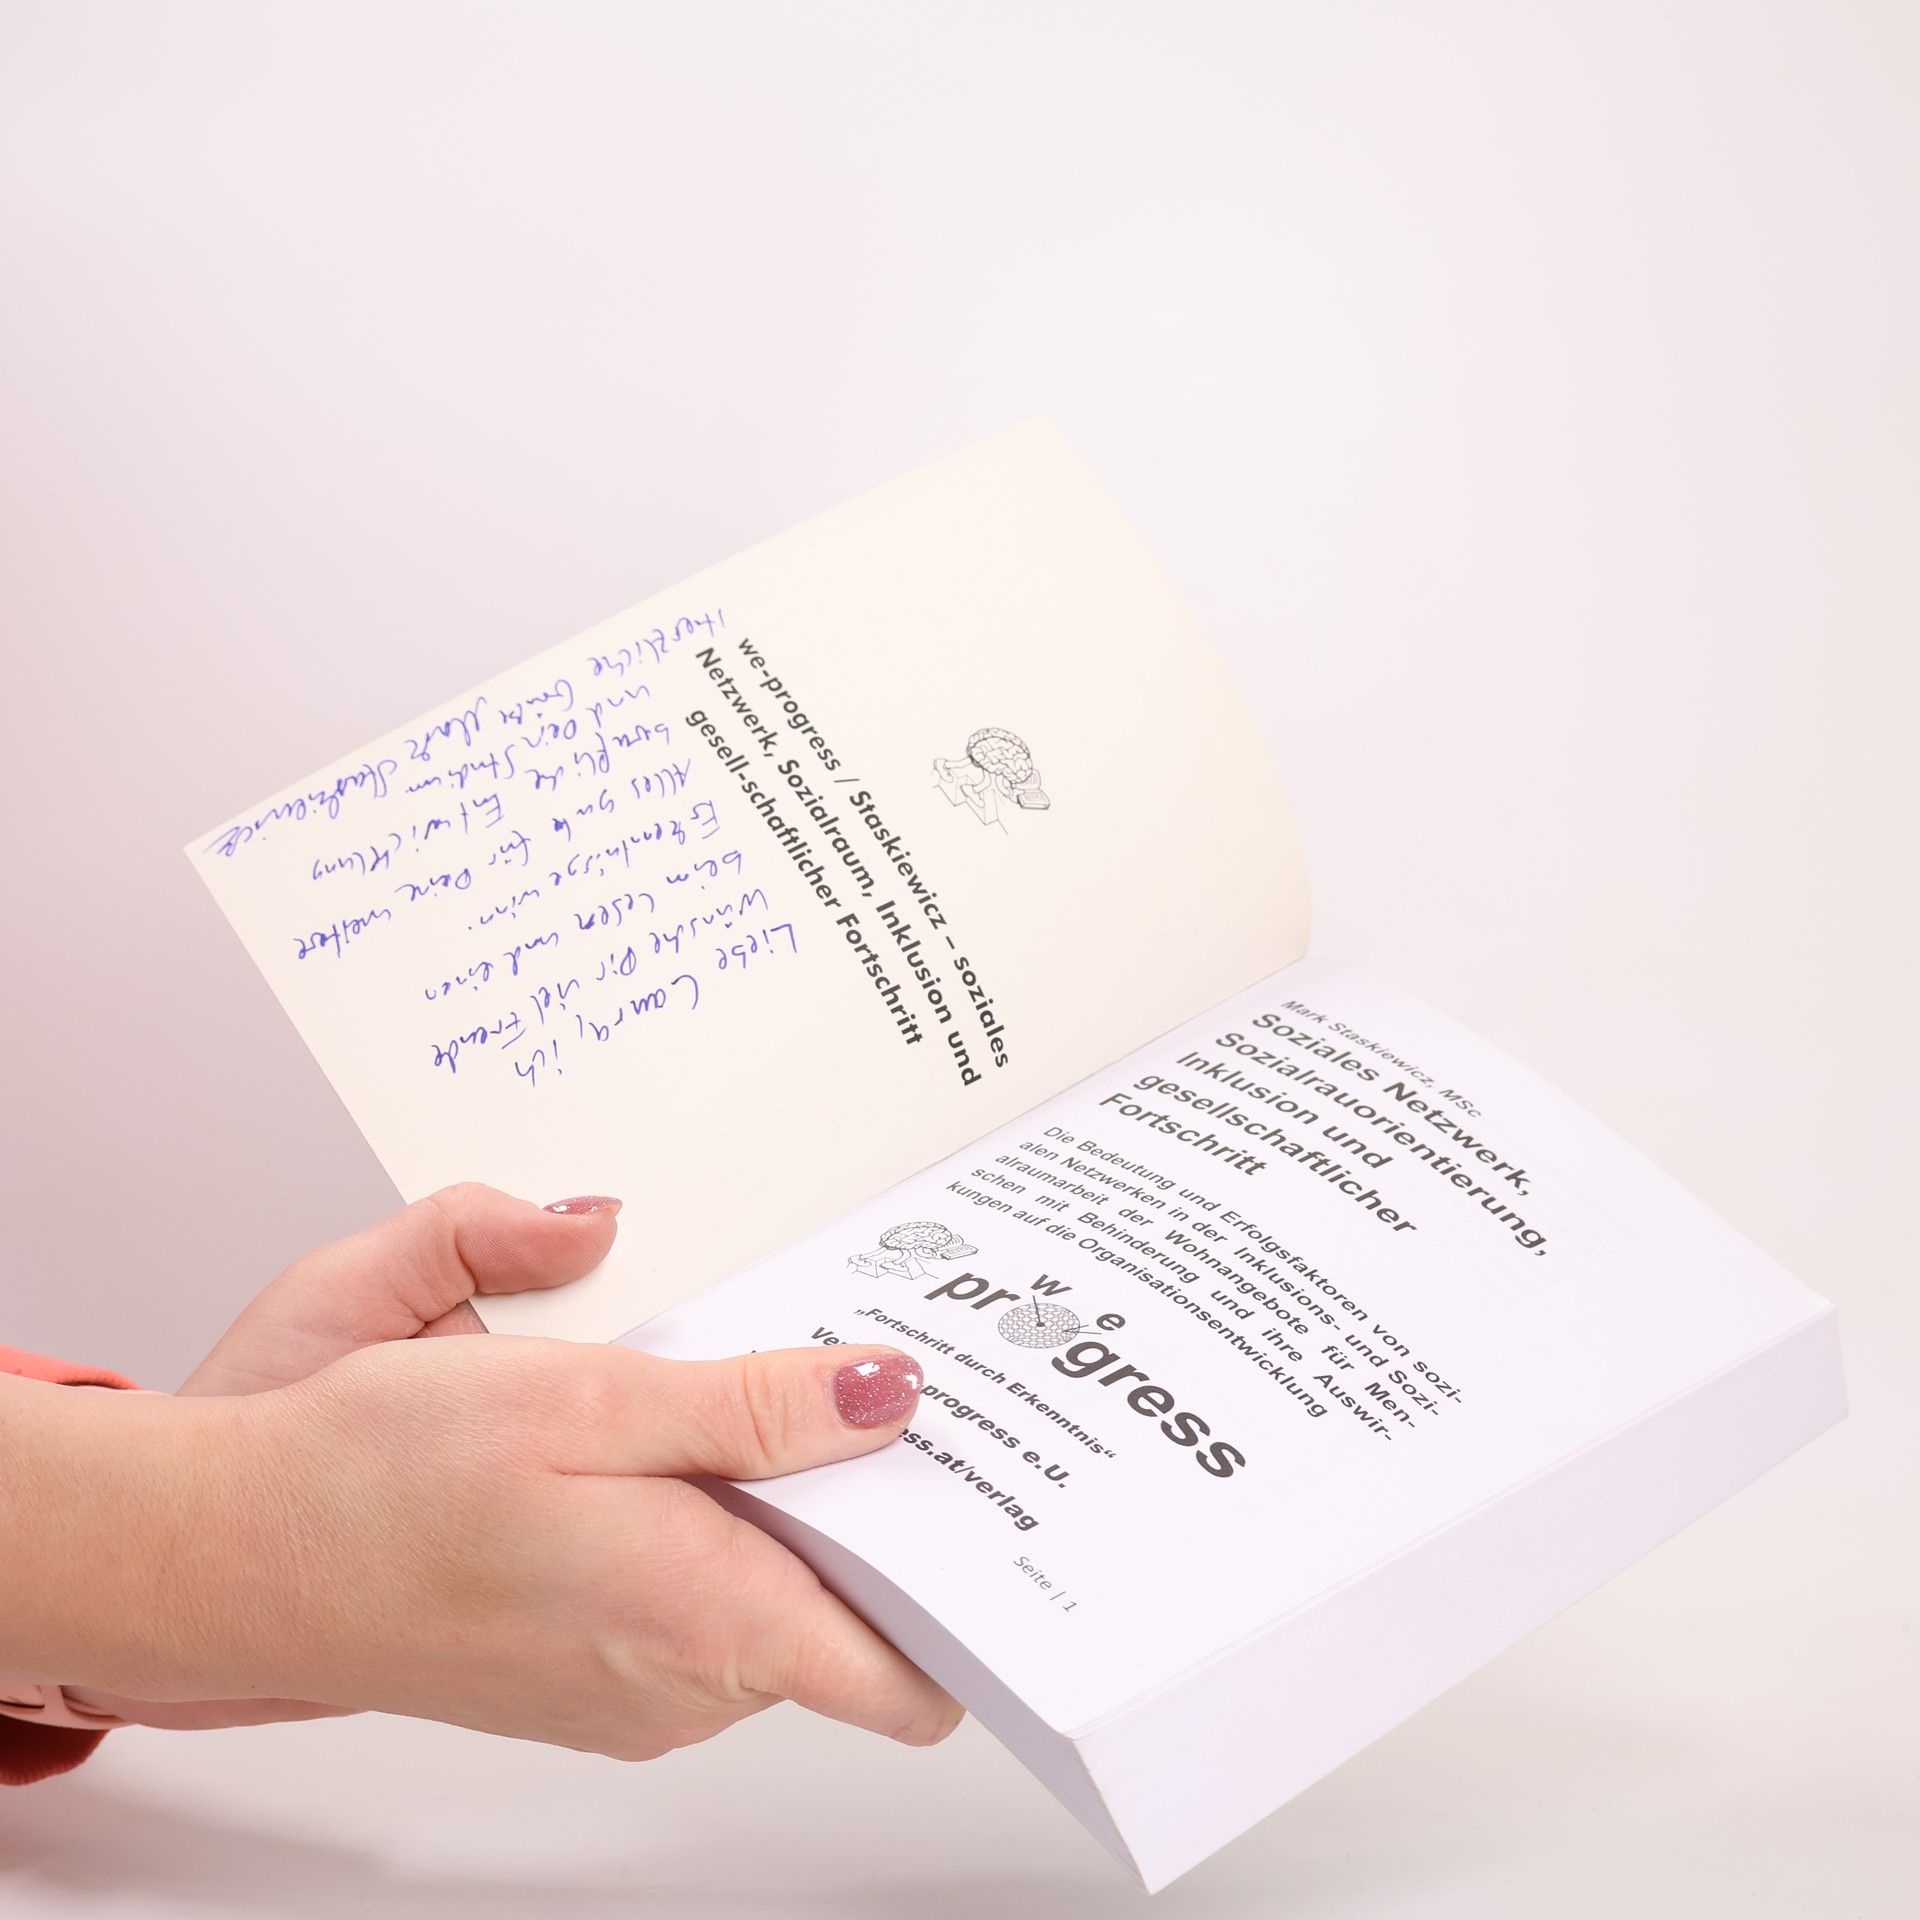 we-progress / Staskiewicz – soziales
Netzwerk, Sozialraum, Inklusion und
gesell-schaftlicher Fortschritt
Liebe Laura, ich
wünsche Dir viel Freude
beim Lesen und einen
Erkenntnisgewinn.
Alles gute für Deine weitere
berufliche Entwicklung
und Dein Studium
Herzliche Grüße Mark Staskiewicz
Mark Staskiewicz, MSc
Soziales Netzwerk,
Sozialrauorientierung,
Inklusion und
gesellschaftlicher
Fortschritt
Die Bedeutung und Erfolgsfaktoren von sozi-
alen Netzwerken in der Inklusions- und Sozi-
alraumarbeit der Wohnangebote für Men-
schen mit Behinderung und ihre Auswir-
kungen auf die Organisationsentwicklung
we
progress
„Fortschritt durch Erkenntnis“
progress e.U.
ess.at/verlag
Seite | 1